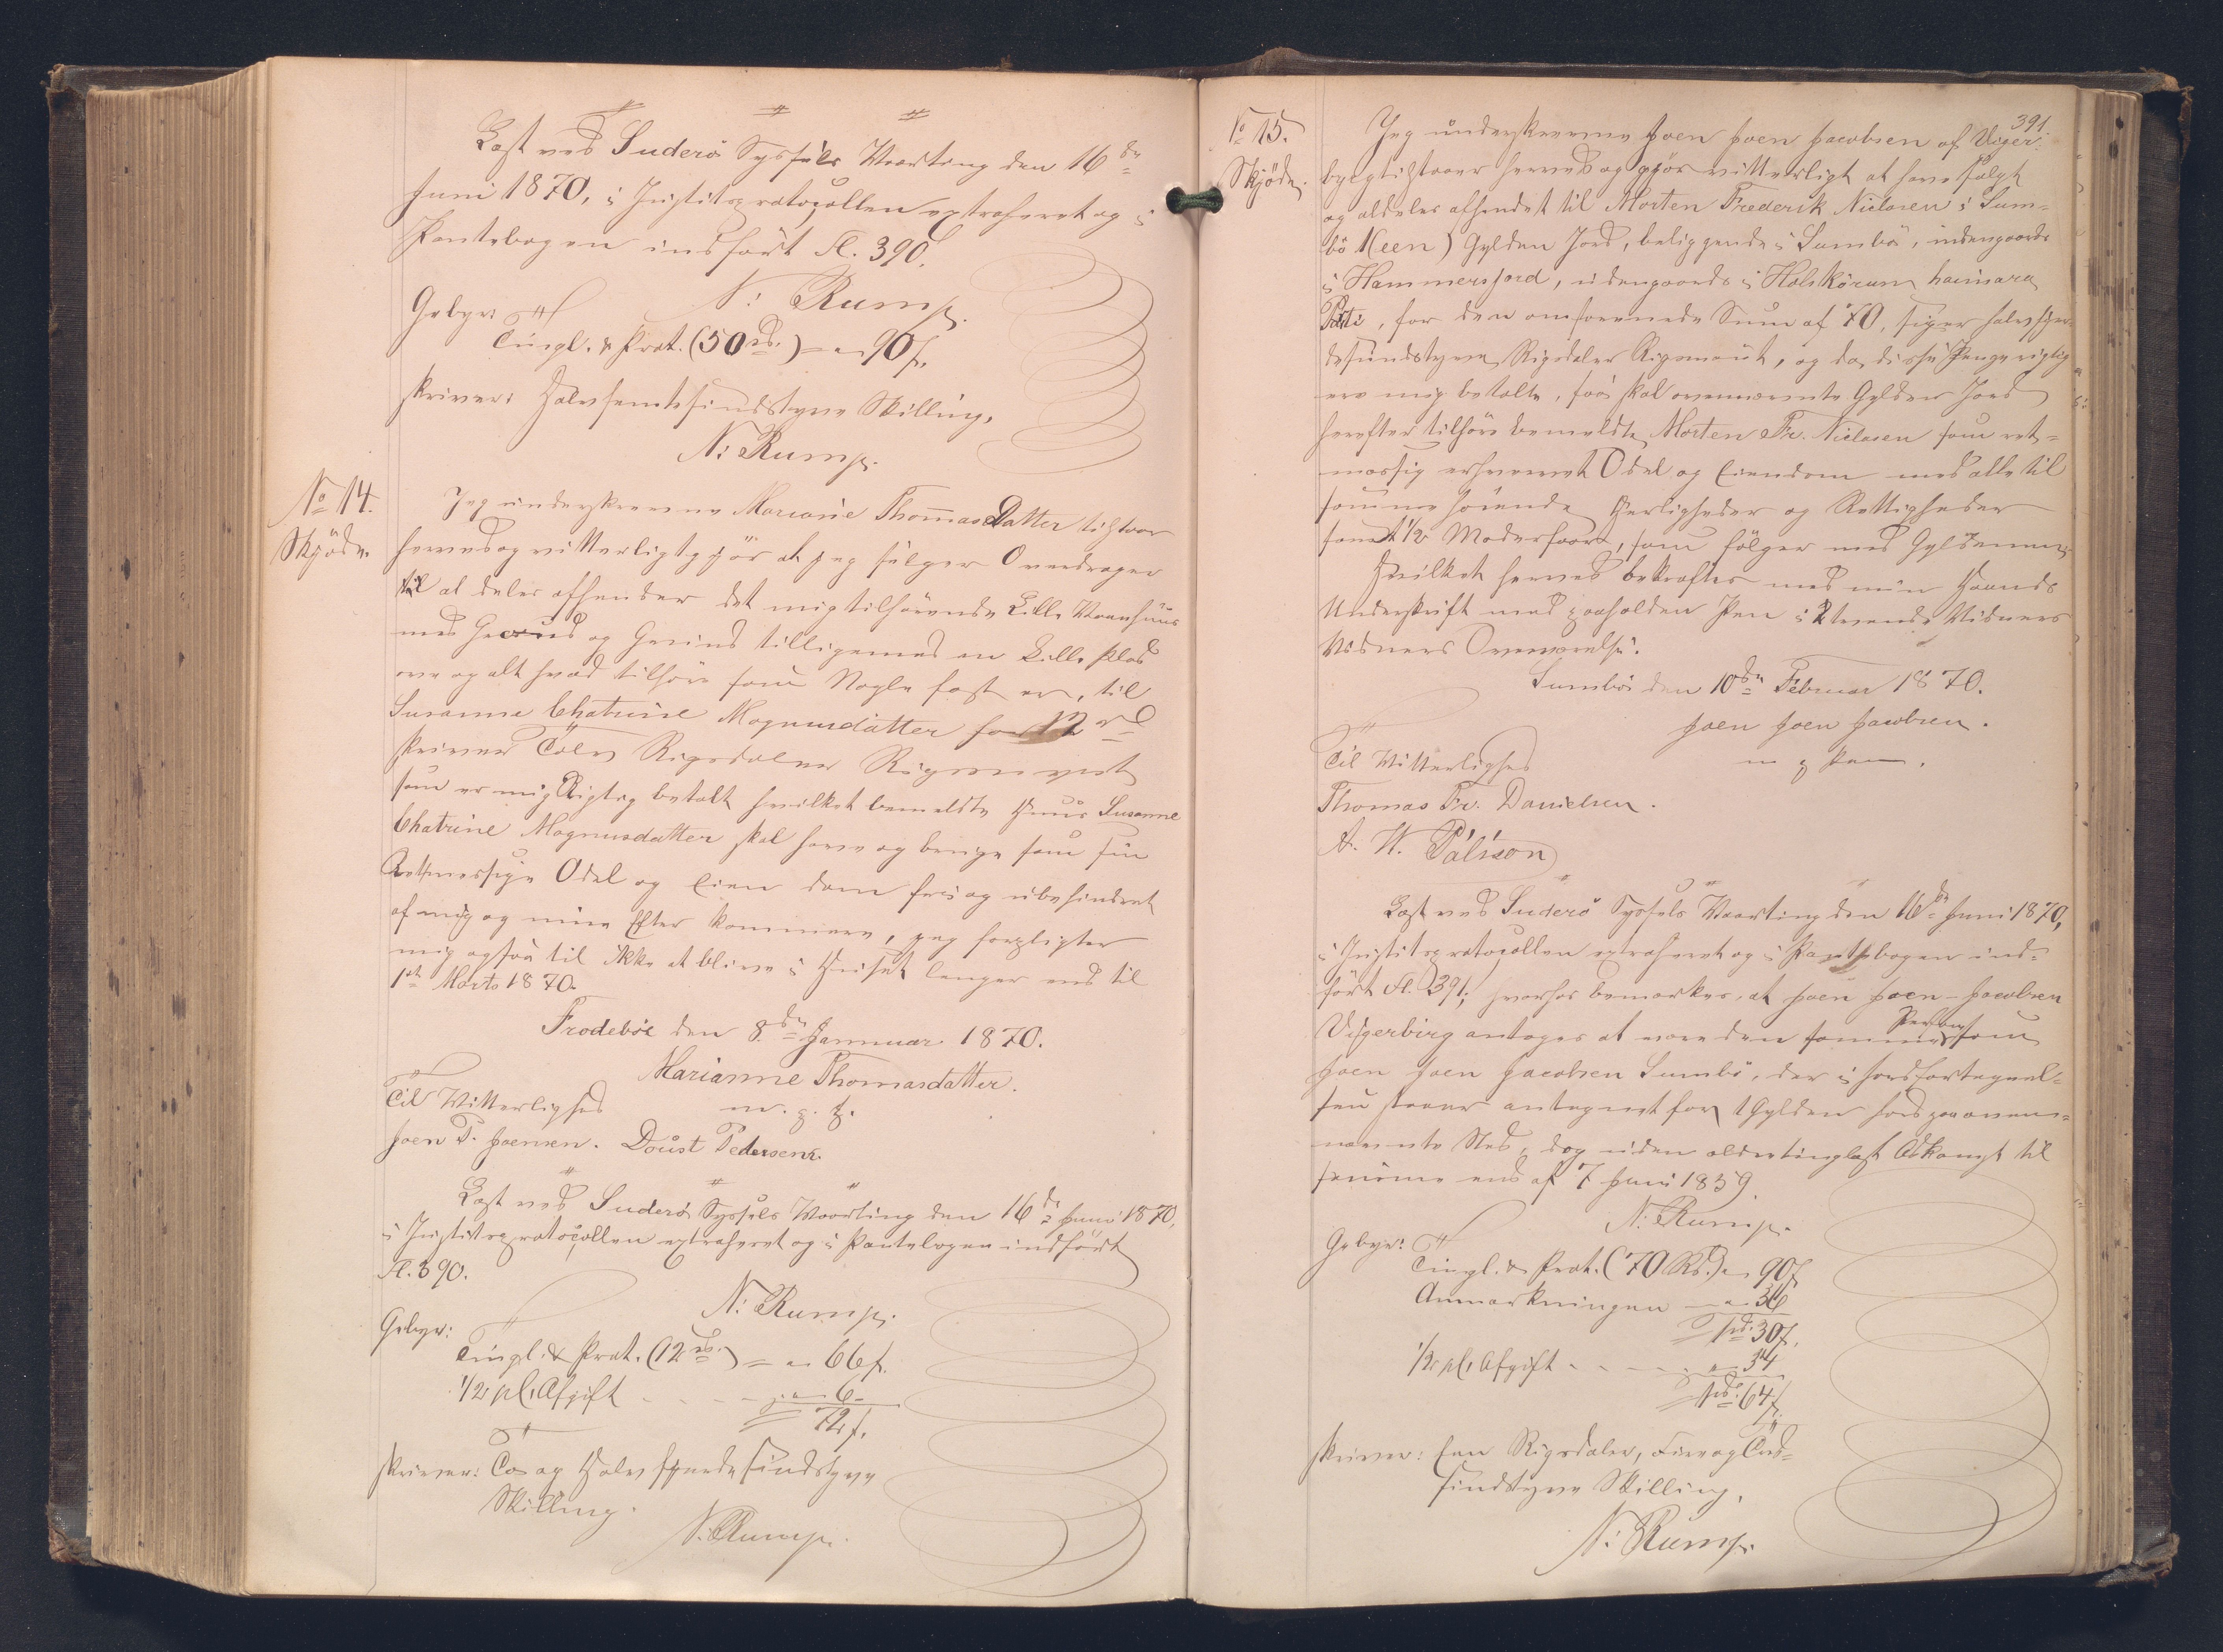 Læst ved Suderø Syssels Vaarting den 16de
Juni 1870, i Justitsprotocollen extraheret og i
Pantebogen indført Fl. 390.
N: Rump.
Gebyr:
Tingl. & Prot. (50 rd.) = 90 s.
skriver: Halvfemtesindstyve Skilling.
N: Rump.
No 14.
Skjøde.
Jeg underskrevne Marianne Thomasdatter tilstaar
herved og vitterligt gjør at jeg sælger Overdrager
til al deles afhender det mig tilhørende Lille Vaanhuus
med Grund og Grind tilligemed en Lille Plads
ove og alt hvad tilhøre som Nagle fast er, til
Susanne Chatrine Magnusdatter for 12 rd
skriver Tolv Rigsdaler Rigsmynt
som er mig Rigtig betalt hvilket bemeldte Huus Susanne
Chatrine Magnusdatter skal have og bruge som sin
Retmessige Odel og Eien dom frei og ubehindret
af mig og mine Efter kommere, jeg forpligter
mig ogsaa til ikke at blive i Huset længer end til
1st Marts 1870.
Frodebøe den 8de Januar 1870.
Marianne Thomasdatter.
Til Witterlighed m. p. P.
Joen P. Joensen. Doust Pedersen.
Læst ved Suderø Syssels Vaarting den 16de Juni 1870,
i Justitsprotocollen extraheret og i Pantebogen indført
Fl. 390.
N: Rump.
Gebyr:
Tingl. & Prot. (12 rd.) = 66 s.
1/2 pCt. Afgift - - - 6 -
72 s.
skriver: To og Halvfjerdesindstyve
Skilling.
N: Rump.
391.
No 15.
Skjøde.
Jeg underskrevne Joen Joen Jacobsen af Viger-
byrg tilstaaer herved og gjør vitterligt at have solgt
og aldeles afhendet til Morten Frederik Nielsen i Sum-
bø 1 (een) Gylden Jord, beliggende i Sumbø, indengaards
i Hammersjord, udengaards i Holskørum haimara
Parti, for den omforenede Sum af 70, siger halvfjer-
desindstyve Rigsdaler Rigsmønt, og da disse Penge rigtig
ere mig betalte, saa skal ovennævnte Gylden Jord
herefter tilhøre bemeldte Morten Fr. Nielsen som ret-
mæssig erhvervet Odel og Eiendom med alle til
samme hørende Herligheder og Rettigheder
samt 1/2 Moderfaar, som følger med Gyldenen.
Hvilket herved bekræftes med min Haands
Underskrift med paaholden Pen i 2 tvende Vidners
Vidners Overværelse.
Sumbø den 10de Februar 1870.
Joen Joen Jacobsen.
Til Witterlighed m p Pen.
Thomas Fr. Danielsen.
A. W. Pálsson
Læst ved Suderø Syssels Vaarting den 16de Juni 1870,
i Justitsprotocollen extraheret og i Pantebogen ind-
ført Fl. 391; hvorhos bemærkes, at Joen Joen-Jacobsen
Vigerbirg antages at være den samme Person som
Joen Joen Jacobsen Sumbø, der i Jordfortegnel-
sen staaer antegnet for 1 Gylden Jord paa oven-
nævnte Sted, dog uden ældre tinglæst Adkomst til
samme end af 7 Juni 1859.
N: Rump.
Gebyr:
Tingl. & Prot. (70 Rd.) 90 s
Anmærkningen - 36
1 rd. 30 s.
1/2 pCt. Afgift - - - 34
1 rd. 64 s.
skriver: Een Rigsdaler, Fire og Tred-
sindstyve Skilling.
N: Rump.